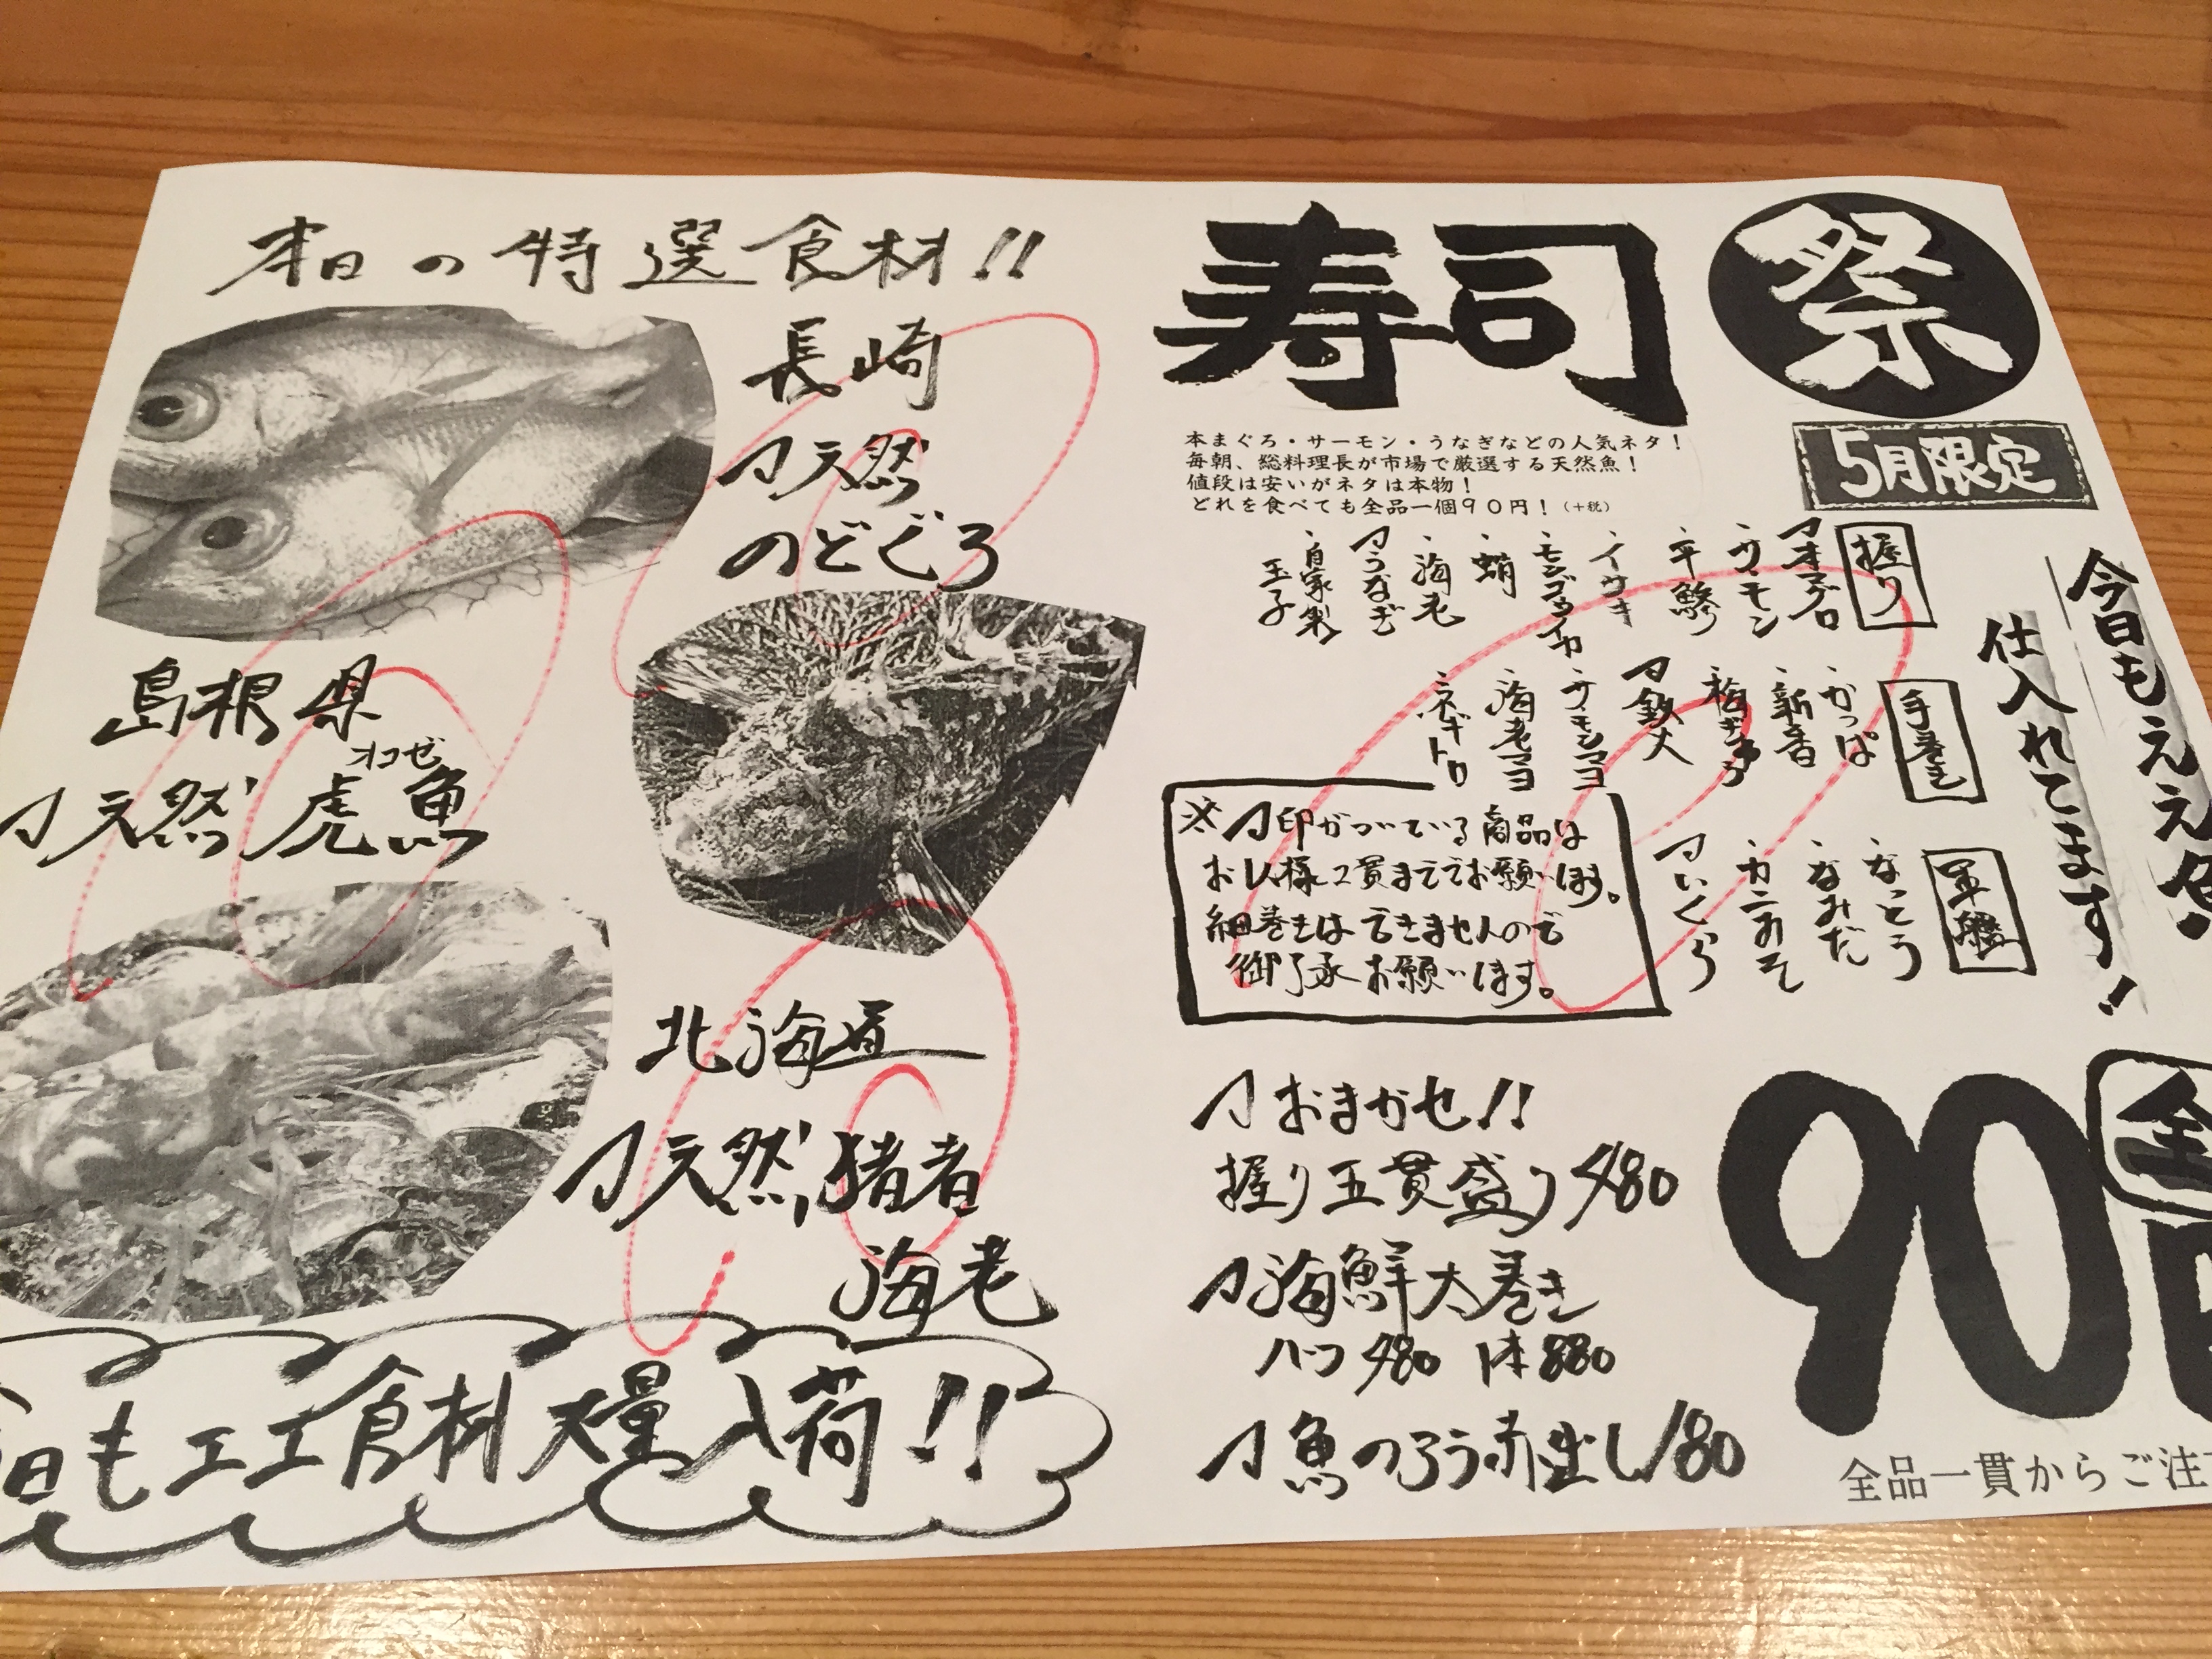 本日の特選食材!!
長崎
天然
のどぐろ
島根県
オコゼ
天然虎魚
北海道
天然猪者
海老
日もエエ食材大量入荷!!
寿司
祭
5月限定
本まぐろ・サーモン・うなぎなどの人気ネタ!
毎朝、総料理長が市場で厳選する天然魚!
値段は安いがネタは本物!
どれを食べても全品一個90円!(+税)
今日もええ魚
仕入れてます!
握り
本マグロ
・サーモン
・平鯵
・イサキ
・モンゴウイカ
・蛸
・海老
うなぎ
・自家製
玉子
手巻き
・かっぱ
・新香
・梅きゅう
鉄火
・サーモンマヨ
・海老マヨ
・ネギトロ
軍艦
・なっとう
・なみだ
・カニみそ
いくら
※マ印がついている商品は
お1人様2貫まででお願いします。
細巻きはできませんので
御了承お願いします。
おまかせ!!
握り五貫盛り480
海鮮太巻き
ハーフ480 1本880
魚のあら赤出し180
90
全
全品一貫からご注